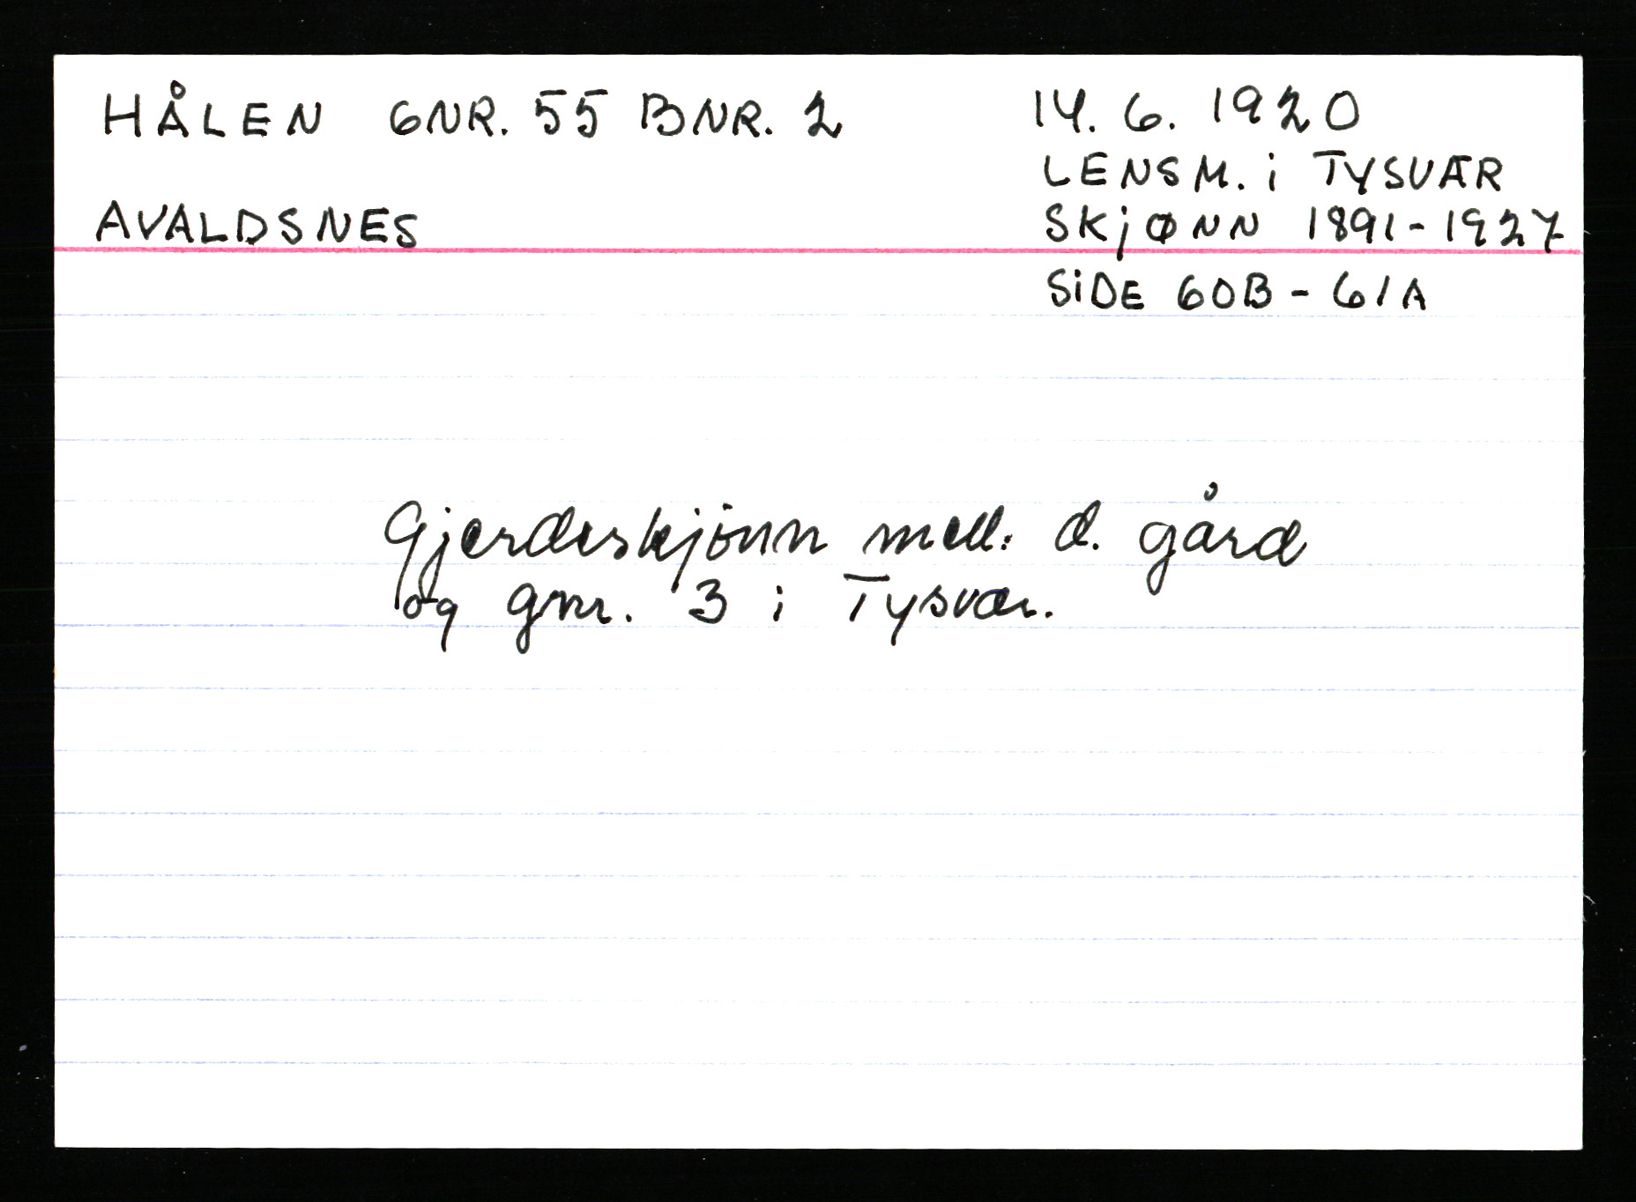 HÅLEN GNR. 55 BNR. 2
AVALDSNES
14. 6. 1920
LENSM. i TYSVÆR
SKjØNN 1891-1927
SiDE 60B - 61A
Gjerdeskjönn mell. d. gård
og gnr. 3 i Tysvær.